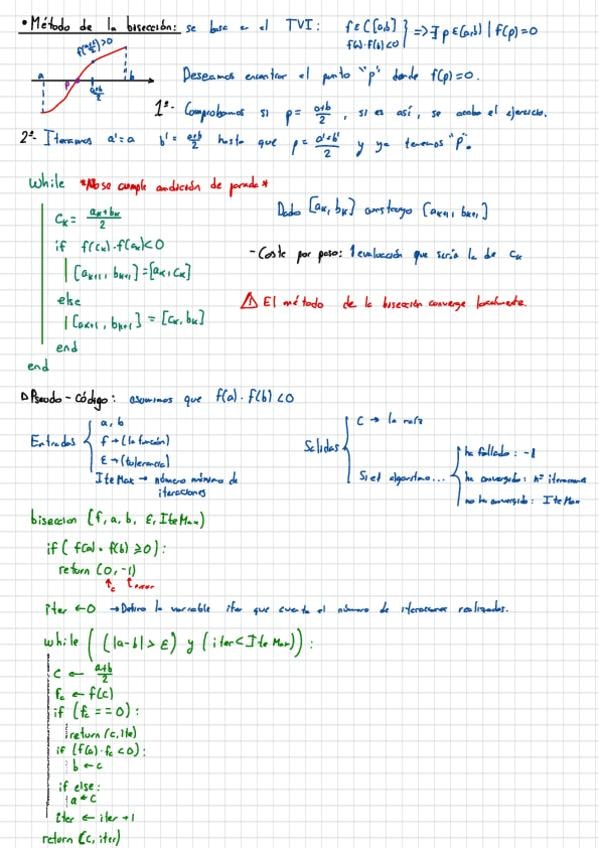 • Método de la bisección: se basa en el TVI: f∈C([a,b] f(a)·f(b)<0 } => ∃ p∈(a,b) | f(p)=0
f(a+b/2)>0
a p a+b/2 b
Deseamos encontrar el punto "p" donde f(p)=0.
1º- Comprobamos si p= a+b/2, si es así, se acabo el ejercicio.
2º- Iteramos a'=a b'= a+b/2 hasta que p= a'+b'/2 y ya tenemos "p".
While *No se cumple condición de parada*
Dado [aₖ, bₖ] construyo [aₖ₊₁, bₖ₊₁]
Cₖ= aₖ+bₖ/2
if f(cₖ)·f(aₖ)<0
- Coste por paso: 1 evaluación que sería la de cₖ
[aₖ₊₁, bₖ₊₁]=[aₖ, cₖ]
else
⚠ El método de la bisección converge localmente.
[aₖ₊₁, bₖ₊₁] = [cₖ, bₖ]
end
end
Pseudo-Código: asumimos que f(a)·f(b)<0
Entradas { a, b
f → (la función)
ε → (tolerancia)
IteMax → número mínimo de
iteraciones
Salidas { C → la raíz
Si el algoritmo... { ha fallado: -1
ha convergido: nº iteraciones
no ha convergido: IteMax
biseccion (f, a, b, ε, IteMax)
if ( f(a) · f(b) ≥0):
return (0, -1)
c error
iter ← 0 → Defino la variable iter que cuenta el número de iteraciones realizadas.
while ( (|a-b|> ε) y (iter<IteMax)):
C ← a+b/2
fc ← f(c)
if (fc == 0):
return (c, ite)
if (f(a)·fc <0):
b ← c
if else:
a ← c
iter ← iter +1
return (c, iter)